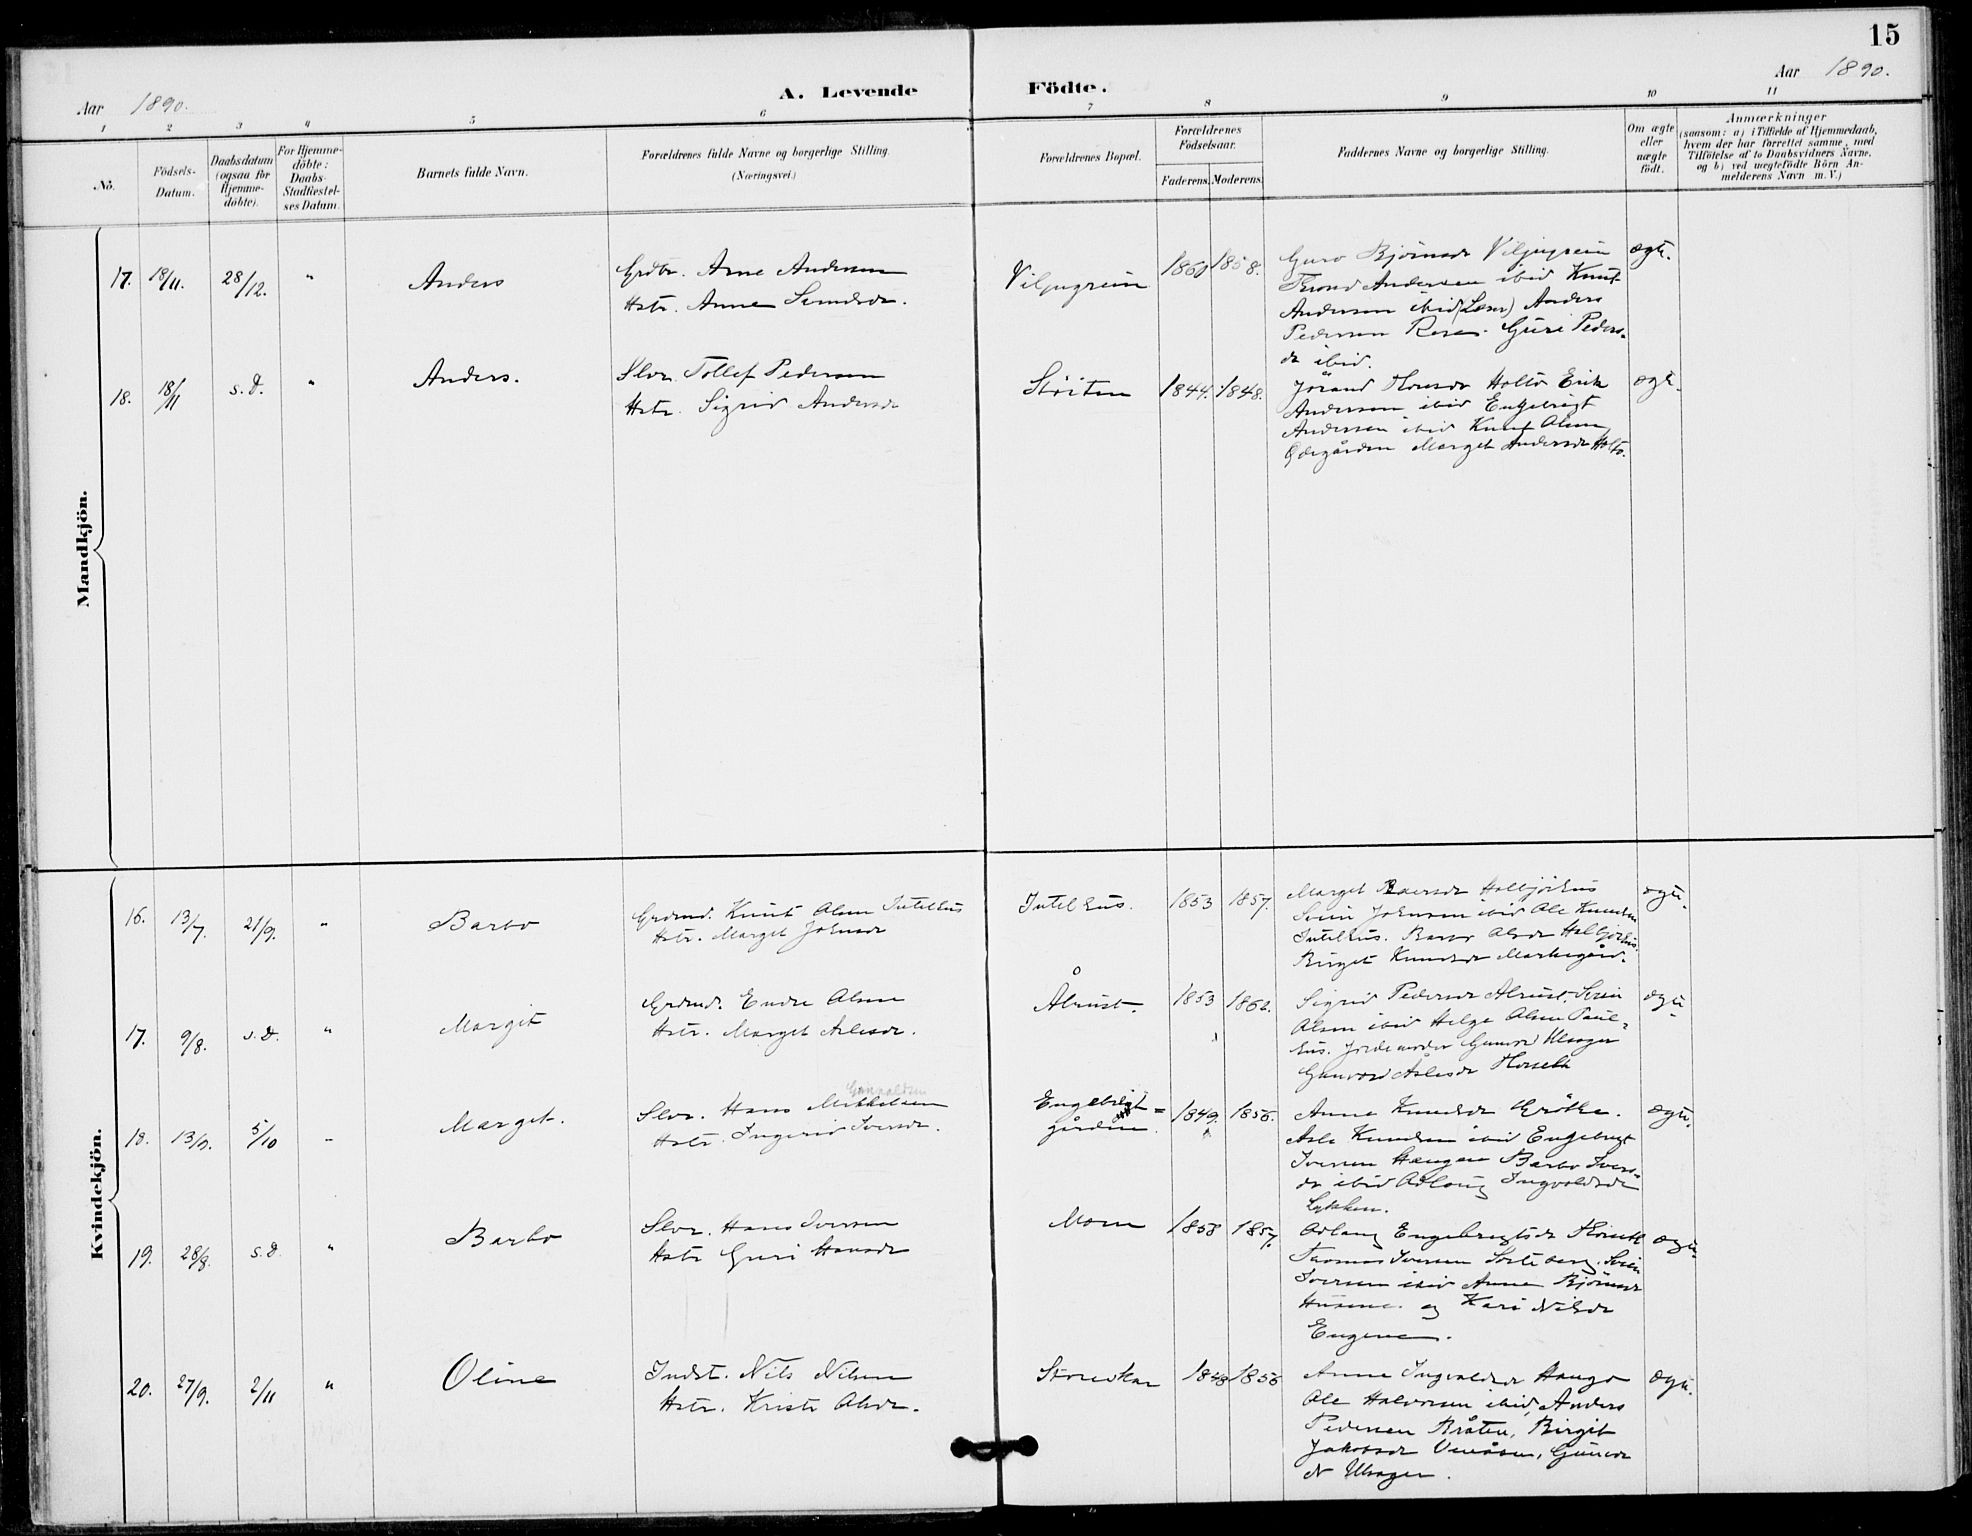 15
Aar 1890.
A. Levende Födte.
Aar 1890.
1 2 3 4 5 6 7 8 9 10 11
No.
Födsels-
Datum.
Daabsdatum
(ogsaa for
Hjemme-
döbte).
For Hjemme-
döbte:
Daabs-
Stadfæstel-
ses Datum.
Barnets fulde Navn.
Forældrenes fulde Navne og borgerlige Stilling.
(Næringsvei.)
Forældrenes Bopæl.
Forældrenes
Födselsaar.
Faderens. Moderens.
Faddernes Navne og borgerlige Stilling.
Om ægte
eller
uægte
födt.
Anmærkninger
(saasom: a) i Tilfælde af Hjemmedaab,
hvem der har forrettet samme, med
Tilföielse af to Daabsvidners Navne,
og b) ved uægtefödte Börn An-
melderens Navn m. V.)
Mandkjön.
17. 18/11. 28/12. " Anders
Grdbr. Arne Andersen
Hstr. Anne
Viljugrein
1860 1858.
Guro Björnsdr Viljugrein
Trond Andersen ibid Knut
Andersen ibid Anders
Pedersen Guri Peders-
dr ibid.
ægte.
18. 18/11 s.d. " Anders.
Slvr. Tollef Pedersen
Hstr. Sigrid Andersdr
Stöiten
1844. 1848.
Jörand Holto Erik
Andersen ibid Engebrigt
Andersen ibid Knut Olsen
Ödegården Marget Andersdr Holto.
ægte.
Kvindekjön.
16. 13/7. 21/9. " Barbo
Grdmd. Knut Olsen Intelhus
Hstr. Marget Johnsdr
Intelhus.
1853 1857.
Marget Halbjörhus
Svein Johnsen ibid Ole Knudsen
Intelhus. Barbo Olsdr Halbjörhus.
Birget Knudsdr Markegård.
ægte.
17. 9/8. s.d. " Margit
Grdmd. Endre Olsen
Hstr. Marget Aslesdr.
Ålrust.
1853 1862.
Sigrid Pedersdr Alrust. Svein
Olsen ibid Helge Olsen Paul-
hus. Jordemoder Gunvor Ulsager
Gunvor Aslesdr
ægte
18. 13/9. 5/10 " Marget.
Gunvaldsen
Slvr. Hans Mikkelsen
Hstr. Ingerid Iversdr.
Engebrigt-
gården.
1849. 1856.
Anne Knudsdr Gröthe.
Asle Knudsen ibid Engebrigt
Iversen Haugen Barbo Ivers-
dr ibid Adlaug Ingvoldsdr
Lykken.
ægte.
19. 28/8. s.d. " Barbo
Slvr. Hans Iversen
Hstr Guri Hansdr
Moen
1858 1857.
Adlaug Engebregtsdr
Thomas Iversen Sorteberg. Svein
Iversen ibid Anne Björnsdr
Husene. og Kari Nilsdr
Engene.
ægte.
20. 27/9. 2/11 " Oline
Indst. Nils Nilsen
Hstr. Kristi Olsdr.
1848 1856
Anne Ingvaldsdr Haugo
Ole Halvorsen ibid, Anders
Pedersen Bråten, Birgit
Jakobsdr Venåsen, Gunvor
N Ulsager.
ægte.